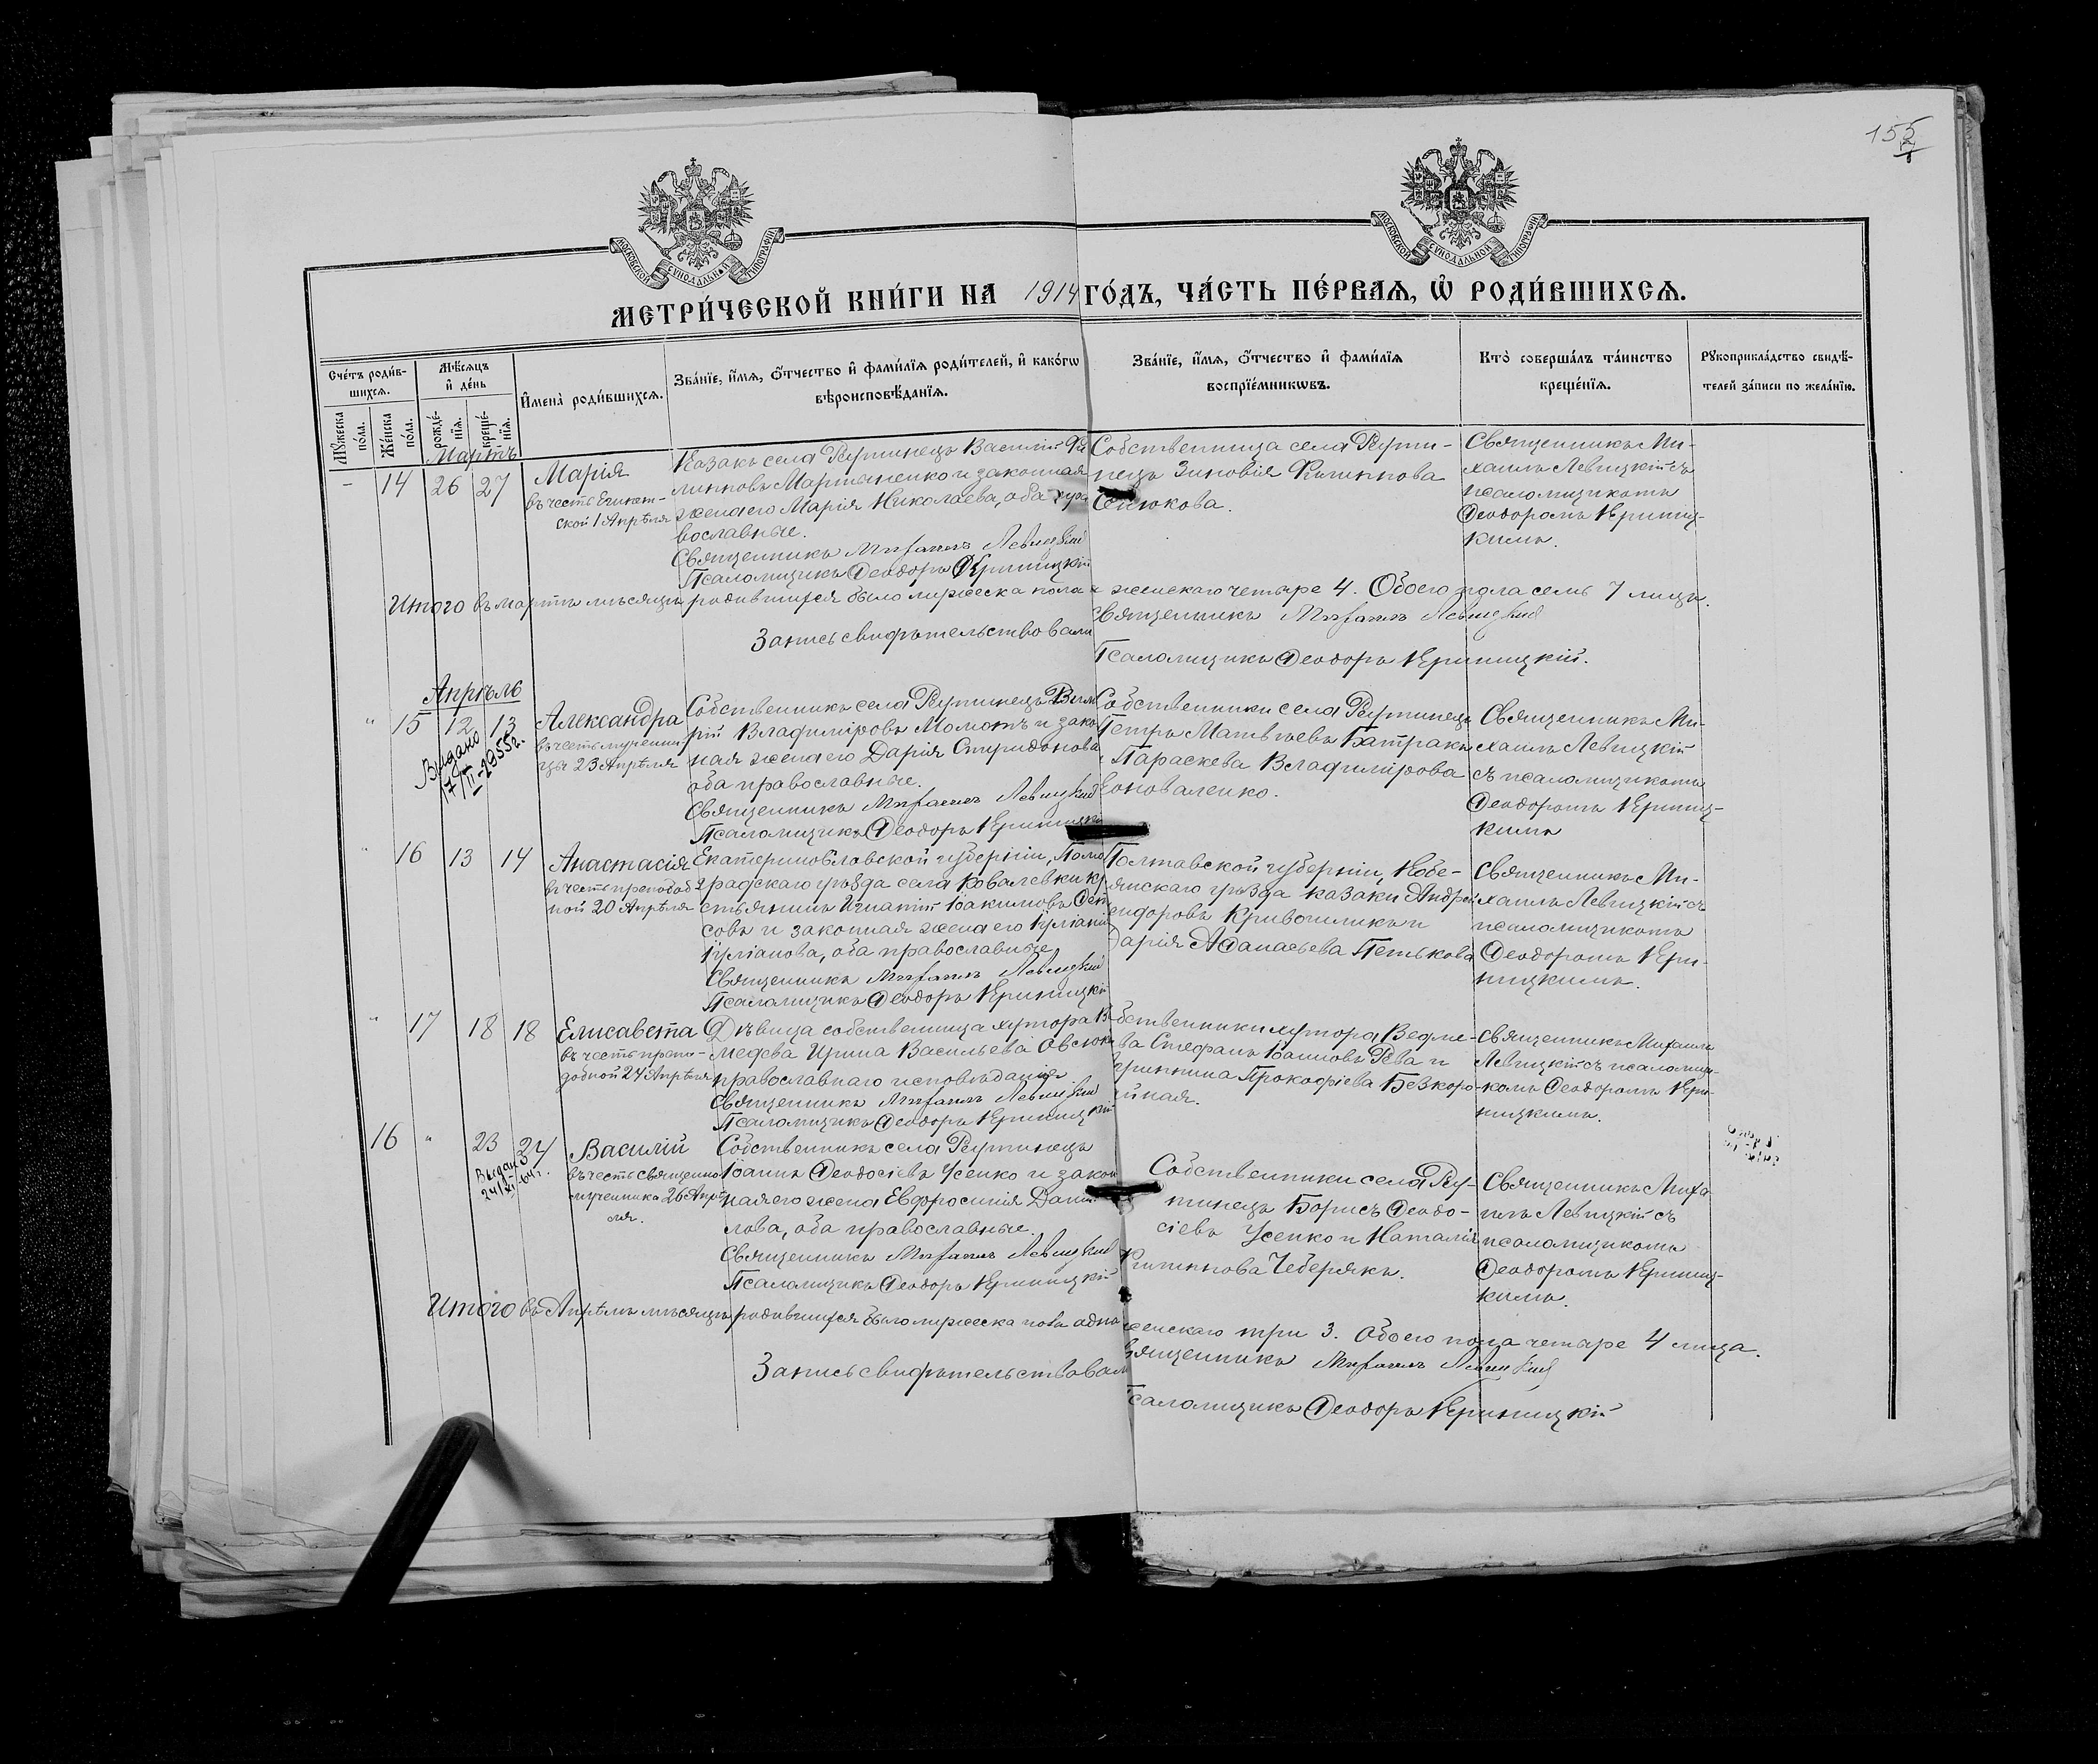 155
МОСКОВСКОЙ СѴНОДАЛЬНОЙ ТИПОГРАФІИ
МОСКОВСКОЙ СѴНОДАЛЬНОЙ ТИПОГРАФІИ
МЕТРИ́ЧЕСКОЙ КНИ́ГИ НА 1914 ГО́ДЪ, ЧА́СТЬ ПЕ́РВАѦ, Ѡ҆ РОДИ́ВШИХСѦ.
Сче́тъ роди́в-
шихсѧ.
Мꙋ́жеска
по́ла.
Же́нска
по́ла.
Мѣ́сѧцъ
и҆ де́нь
рожде́-
нїѧ.
креще́-
нїѧ.
И҆мена̀ роди́вшихсѧ.
Зва́нїе, и҆́мѧ, ѻ҆́тчество и҆ фами́лїѧ роди́телей, и҆ како́гѡ
вѣроисповѣ́данїѧ.
Зва́нїе, и҆́мѧ, ѻ҆́тчество и҆ фами́лїѧ
воспрїе́мникѡвъ.
Кто̀ соверша́лъ та́инство
креще́нїѧ.
Рꙋкоприкла́дство свидѣ́-
телей за́писи по жела́нїю.
Мартъ
- 14 26 27
Марія
въ честь Египет-
ской 1 Апрѣля
Казакъ села Рутинецъ Василій Фи
липповъ Мартыненко и законная
жена его Марія Николаева, оба пра
вославные.
Священникъ Михаилъ Левицкій
Псаломщикъ Ѳеодоръ Криницкій
Собственница села Рути-
нецъ Зиновія Филиппова
Сенюкова.
Священникъ Ми-
хаилъ Левицкій съ
псаломщикомъ
Ѳеодоромъ Криниц-
кимъ.
Итого въ мартѣ мѣсяцѣ родившихся было мужеска пола и женскаго четыре 4. Обоего пола семь 7 лицъ.
Запись свидѣтельствовали
Священникъ Михаилъ Левицкій
Псаломщикъ Ѳеодоръ Криницкій.
Апрѣль
" 15 12 13
Выдано
17/II-1955г.
Александра
въ честь мучени-
цы 23 Апрѣля
Собственникъ села Рутинецъ
рій Владиміровъ Момотъ и закон
ная жена его Дарія Спиридонова
оба православные.
Священникъ Михаилъ Левицкій
Псаломщикъ Ѳеодоръ Криницкій
Собственники села Рутинецъ
Петръ Матвѣевъ Батракъ
и Параскева Владимірова
Коноваленко.
Священникъ Ми-
хаилъ Левицкій
съ псаломщикомъ
Ѳеодоромъ Криниц-
кимъ
" 16 13 14
Анастасія
въ честь преподоб
ной 20 Апрѣля
Екатеринославской губерніи, Павло
градскаго уѣзда села Ковалевки кр
естьянинъ Игнатій Іакимовъ
совъ и законная жена его Іуліанія
Іуліанова, оба православные
Священникъ Михаилъ Левицкій
Псаломщикъ Ѳеодоръ Криницкій
Полтавской губерніи, Кобе-
ляккскаго уѣзда казаки Андрей
сидоровъ Кривошликъ и
Дарія Аѳанасьева Петькова
Священникъ Ми-
хаилъ Левицкій съ
псаломщикомъ
Ѳеодоромъ Кри-
ницкимъ.
" 17 18 18
Елисавета
въ честь препо-
добной 24 Апрѣля
Дѣвица собственница хутора Ве
медева Ирина Васильева Овсюк
православнаго исповѣданія
Священникъ Михаилъ Левицкій
Псаломщикъ Ѳеодоръ Криницкій
бственники хутора Ведме-
ва Стефанъ Іоанновъ Рева и
Прокофіева Безкоро-
йная.
Священникъ Михаилъ
Левицкій съ псаломщи-
комъ Ѳеодоромъ Кри-
ницкимъ.
16 " 23 24
Выдано
24/XI-64г.
Василій
въ честь Священно
мученника 26 Апрѣ
ля.
Собственникъ села Рутинецъ
Іоаннъ Ѳеодосіевъ Усенко и закон
ная его жена Евфросинія Дани
лова, оба православные.
Священникъ Михаилъ Левицкій
Псаломщикъ Ѳеодоръ Криницкій
Собственники села Ру-
тинецъ Борисъ Ѳеодо-
сіевъ Усенко и Наталія
Филиппова Чеберякъ.
Священникъ Миха
илъ Левицкій съ
псаломщикомъ
Ѳеодоромъ Криниц-
кимъ.
Итого въ Апрѣлѣ мѣсяцѣ родившихся было мужеска пола одно женскаго три 3. Обоего пола четыре 4 лица.
Запись свидѣтельствовали
Священникъ Михаилъ Левицкій
Псаломщикъ Ѳеодоръ Криницкій